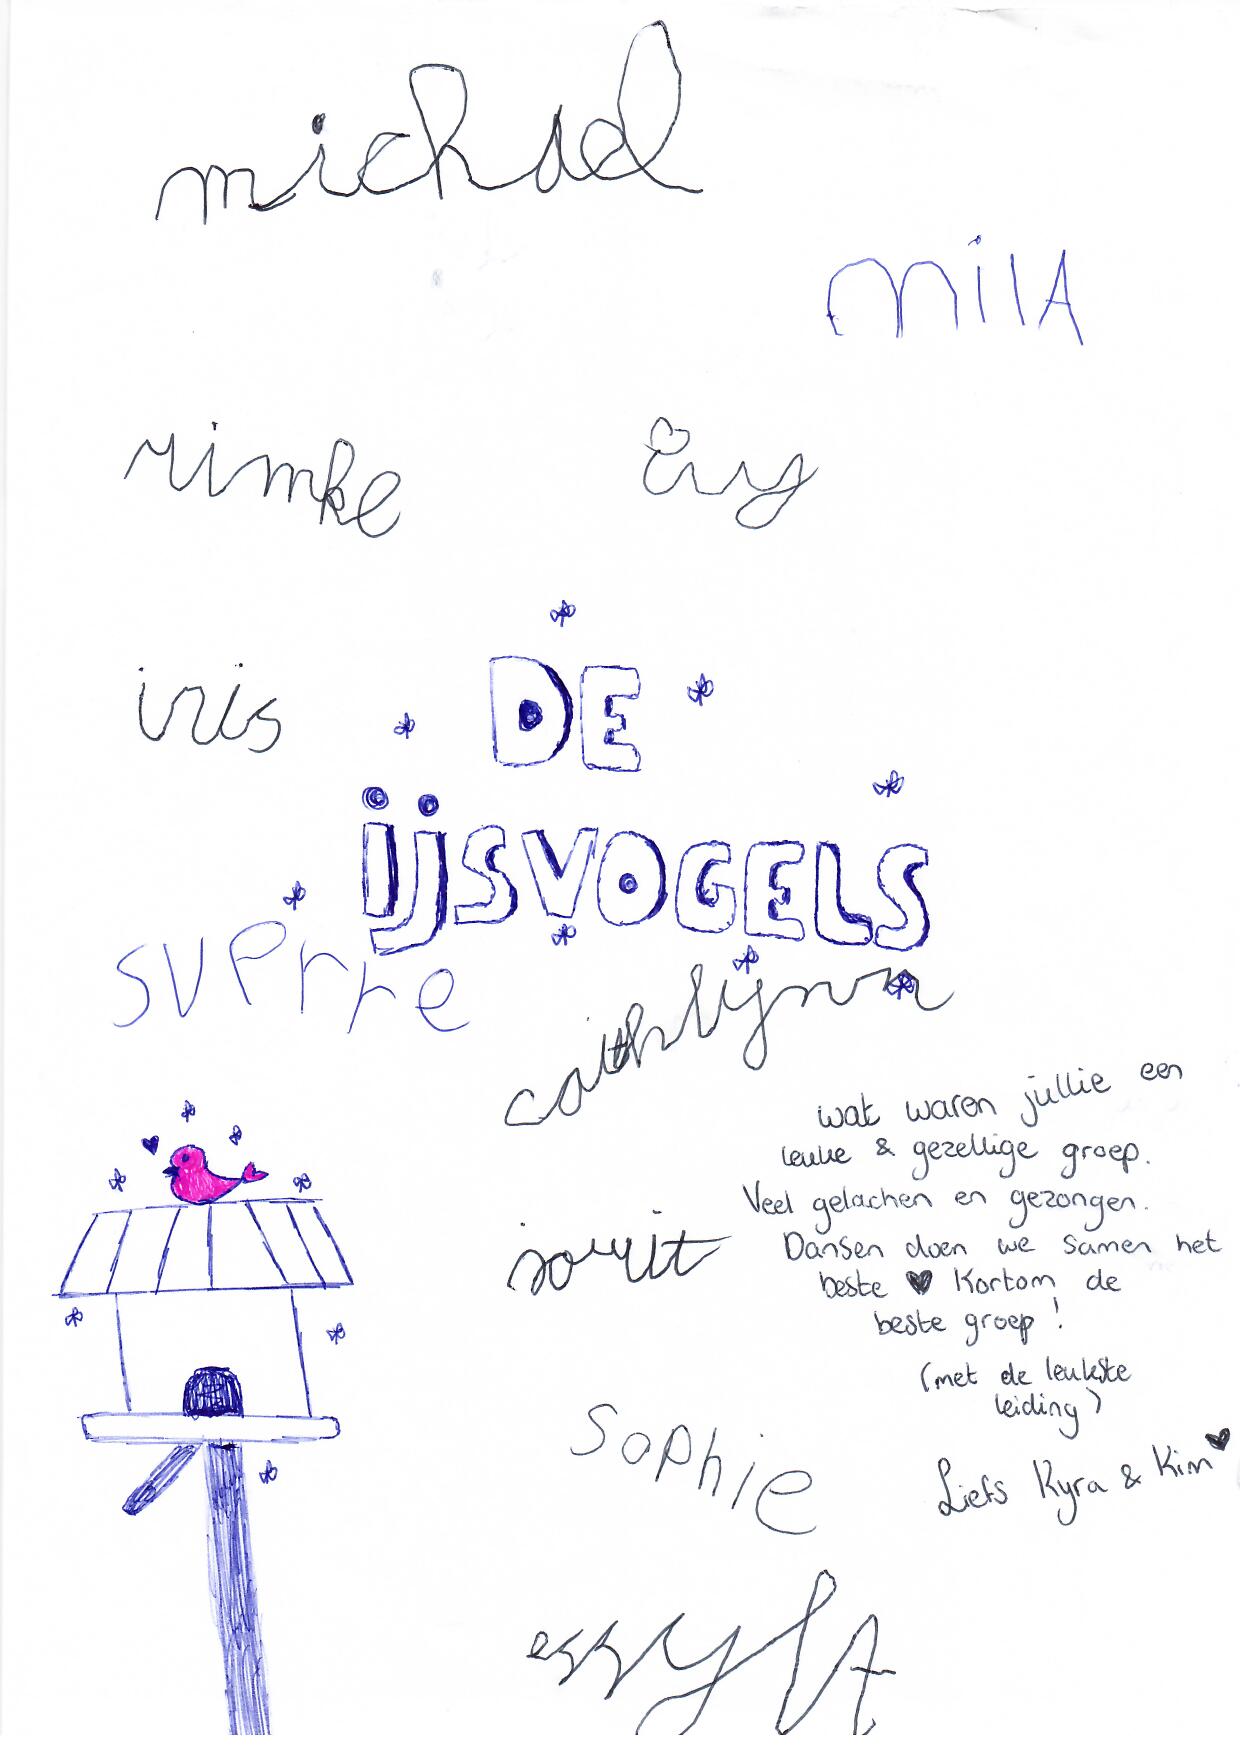 michael
milA
rimke
Evy
DE
iris
IJSVOGELS
sverre
cathlijnn
wat waren jullie een
leuke & gezellige groep.
Veel gelachen en gezongen.
Dansen doen we samen het
beste ♥ Kortom de
beste groep!
(met de leukste
leiding)
Liefs Kyra & Kim ♥
Sophie
essylA